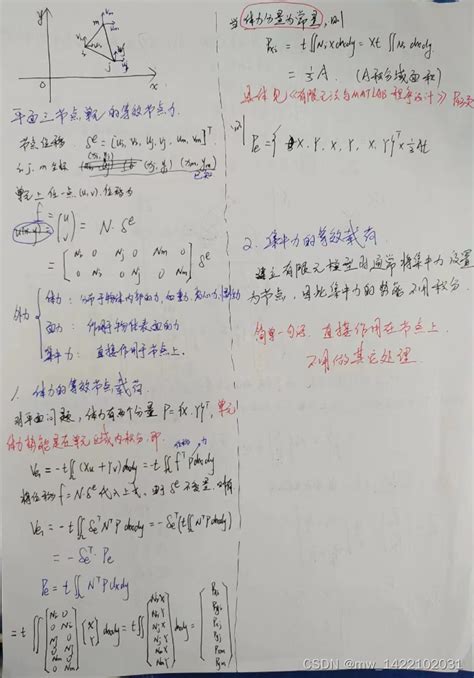 y
x
平面三节点单元的等效节点力.
节点位移 δᵉ = [uᵢ, vᵢ, uⱼ, vⱼ, uₘ, vₘ]ᵀ
i, j, m 坐标 (xᵢ, yᵢ) (xⱼ, yⱼ) (xₘ, yₘ)
已知
单元上任一点(u, v), 位移为
f = (u v) = N·δᵉ
= [Nᵢ 0 Nⱼ 0 Nₘ 0
0 Nᵢ 0 Nⱼ 0 Nₘ] δᵉ
外力
体力: 分布于物体内部的力,
面力: 作用于物体表面的力
集中力: 直接作用于节点上.
1. 体力的等效节点载荷.
对平面问题, 体力有两个分量 P = {X, Y}ᵀ, 单元
体力势能是在单元区域内积分, 即
Ve₁ = -t∬(Xu + Yv)dxdy = -t∬fᵀPdxdy
将位移 f = N·δᵉ 代入上式, 由于 δᵉ 不变量,
Ve₁ = -t∬δeᵀNᵀP dxdy = -δeᵀ(t∬NᵀPdxdy)
= -δeᵀ·Pe
Pe = t∬NᵀPdxdy
= t∬[Nᵢ 0 0 Nᵢ Nⱼ 0 0 Nⱼ Nₘ 0 0 Nₘ]{X Y}dxdy = t∬{NᵢX NᵢY NⱼX NⱼY NₘX NₘY}dxdy = {Pxi Pyi Pxj Pyj Pxm Pym}
当体力分量为常量, 则
Pxi = t∬NᵢXdxdy = Xt∬Nᵢdxdy.
= ⅓A. (A积分域面积)
具体见《有限元法与MATLAB程序设计》
则
Pe = { X, Y, X, Y, X, Y}ᵀ × ⅓At
2. 集中力的等效载荷
建立有限元模型时通常将集中力设置
为节点, 因此集中力的势能不用积分.
简单一句话, 直接作用在节点上,
不用做其它处理.
CSDN @mw_1422102031